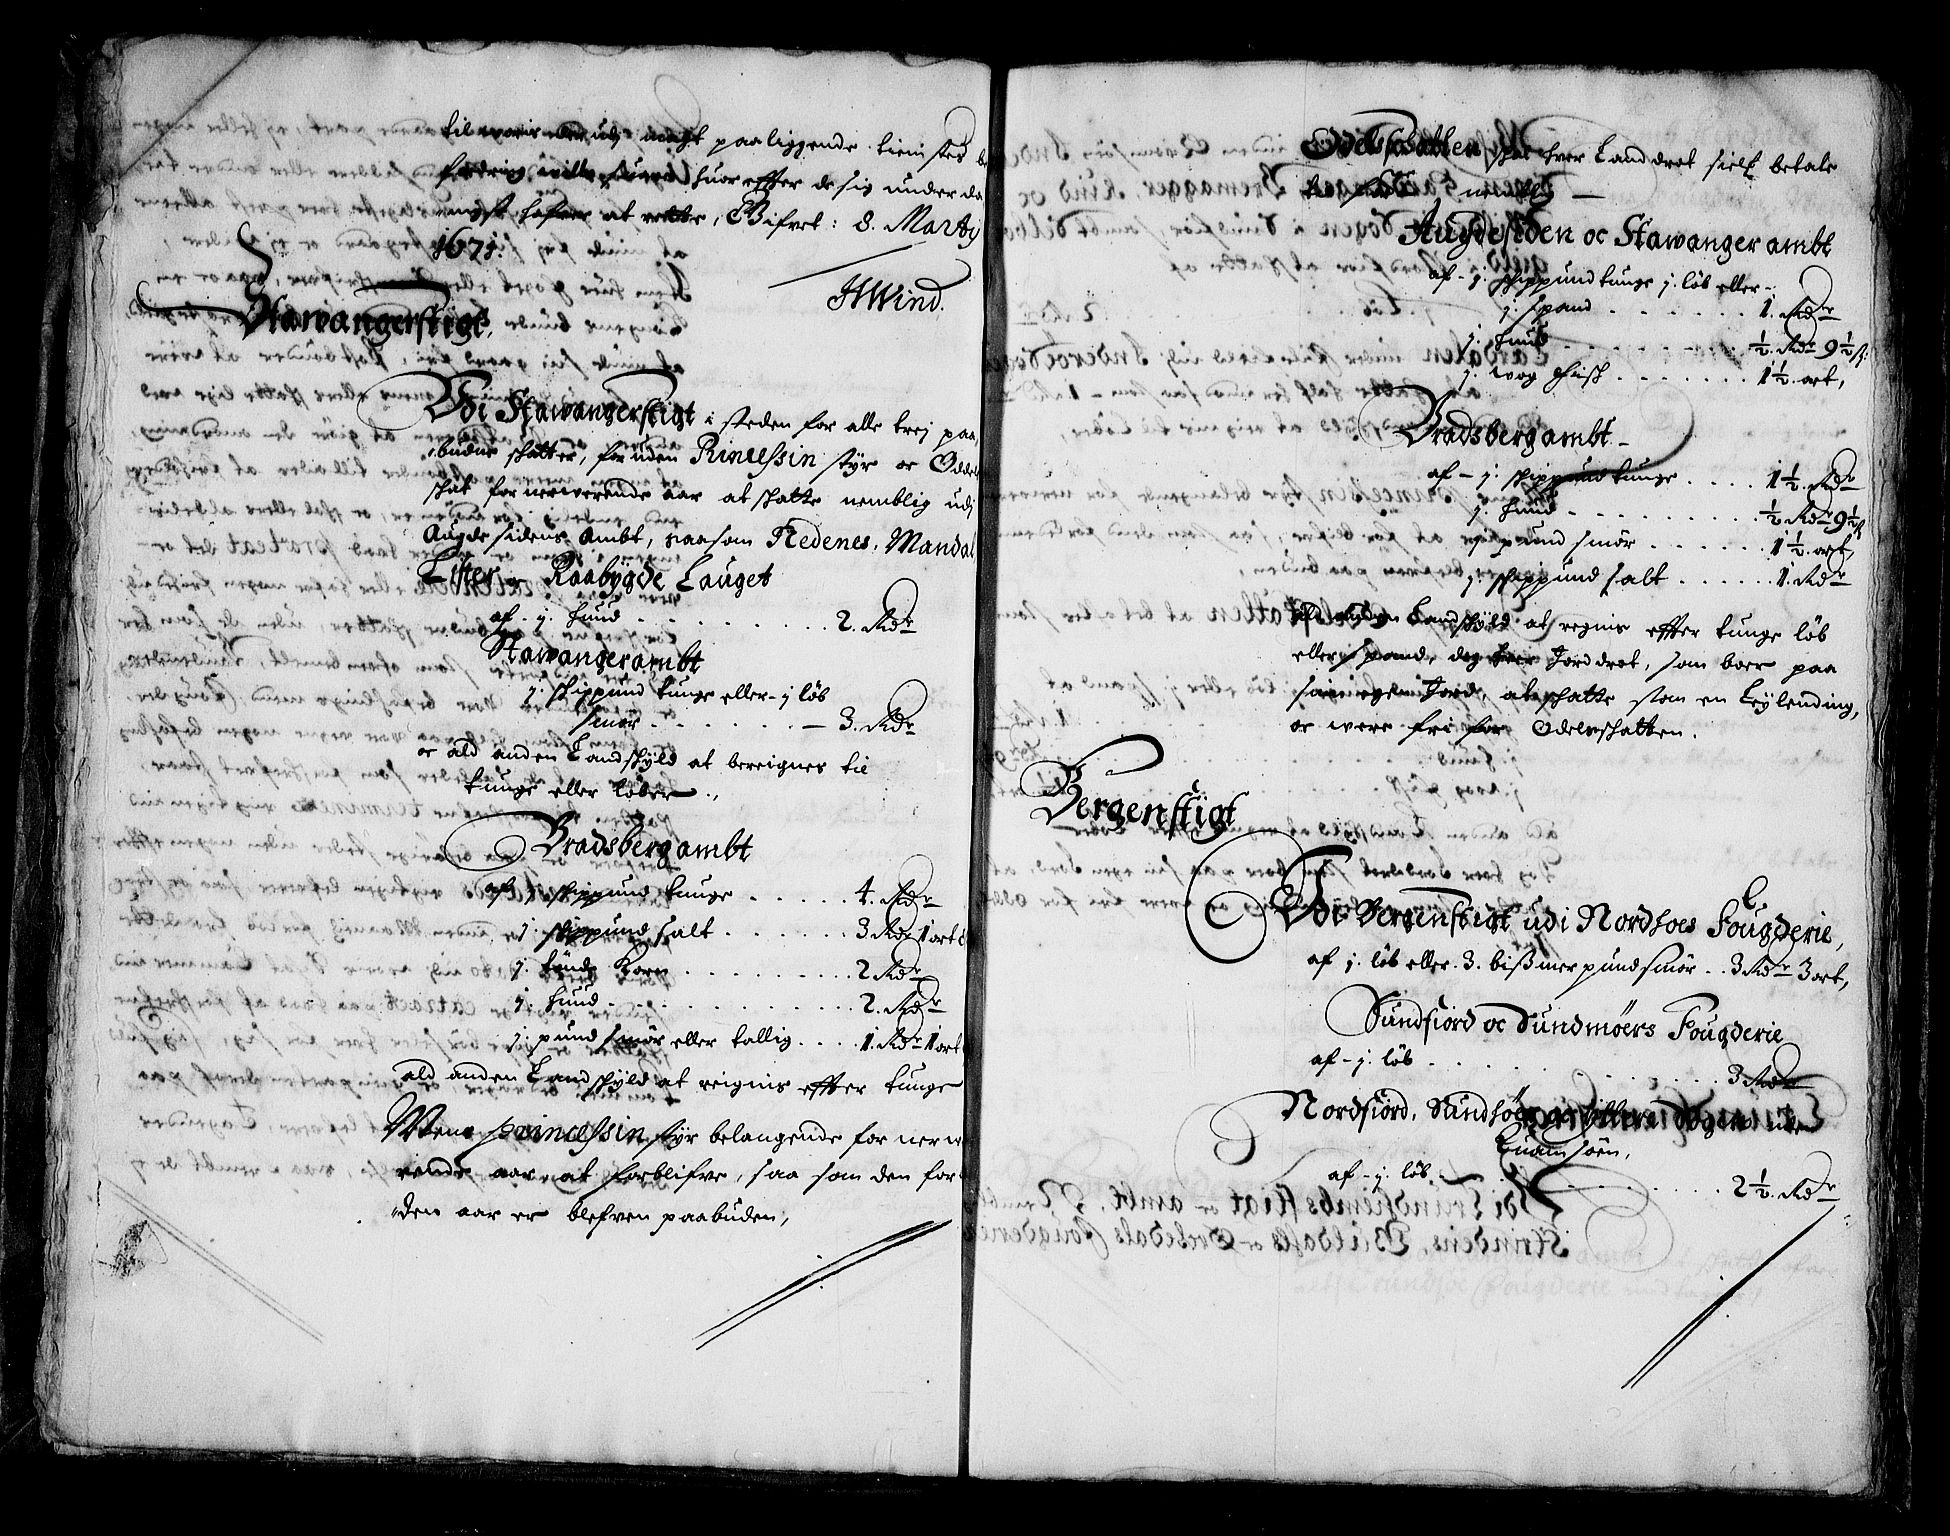 til woris der udj magt paaliggende tienistes be
fodring wille suare, huor effter de sig under da
nigst hafver at rette, Bifvet: 8. Martij
1671.
HWind.
Stawangerstigt.
Udi Stawangerstigt i steden for alle trej paa,
budne skatter, foruden Princessin styr oc Oddel
skat for nerwerende aar at skatte nemblig udj
Augdesidens Ambt, saasom Nedenes, Mandal
Lister og Raabygde Lauget
af - j. Huud . . . . . . . . 2. Rdr
Stawangerambt
j. skippund tunge eller - j løb
smør . . . . . . - 3. Rdr
oc ald anden Landskyld at bereignes til
tunge eller løber.,
Bradsbergambt
af j. skippund tunge . . . . . 4. Rdr
j. skippund salt . . . . . . 3 Rdr 1 ort
j. tønde Korn . . . . . . . . 2 Rdr
j. Huud . . . . . . . . . . 2. Rdr
j. pund smør eller tallig . . . . 1. Rdr 1 ort
ald anden Landskyld at reignis effter tunge
Mens princessin styr belangende for nerwe
rende aar, at forblifve, saa som den for
den aar er blefven paabuden,
Odelsskatten skal hver Landdrot sielf betale
nemblig -
Augdesiden oc Stawanger ambt
af - j. skippund tunge j. løb eller -
j. spand . . . . . . 1. Rdr
j. Huud . . . . . . - . ½. Rdr 9½ ß
j. wog Fisk . . . . . . . 1½. ort,
Bradsbergambt -
af - j. skippund tunge . . . . 1½. Rdr
j. Huud - . . . . . . . . ½ Rdr 9½ ß
j. pund smør . . . . . . 1½. ort
j. skippund salt . . . . . . 1. Rdr
Ald anden Landskyld at regnis effter tunge løb
eller spand, dog hver Jorddrot, som boer paa
sin egen Jord, at skatte som en Leylending,
oc were fri for Odelsskatten.
Bergenstigt
Udi Bergenstigt udi Nordhoes Fougderie,
af j. løb eller. 3. bißmerpund smør . . 3 Rdr 3 ort,
Sundfiord oc Sundmøers Fougderie
af - j. løb . . . . . . . . . . . 3 Rdr
Nordfiord, Sundhøer oc yttere Sogen uden
Quamsøen,
af - j. løb . . . . . . . . . . . 2½. Rdr